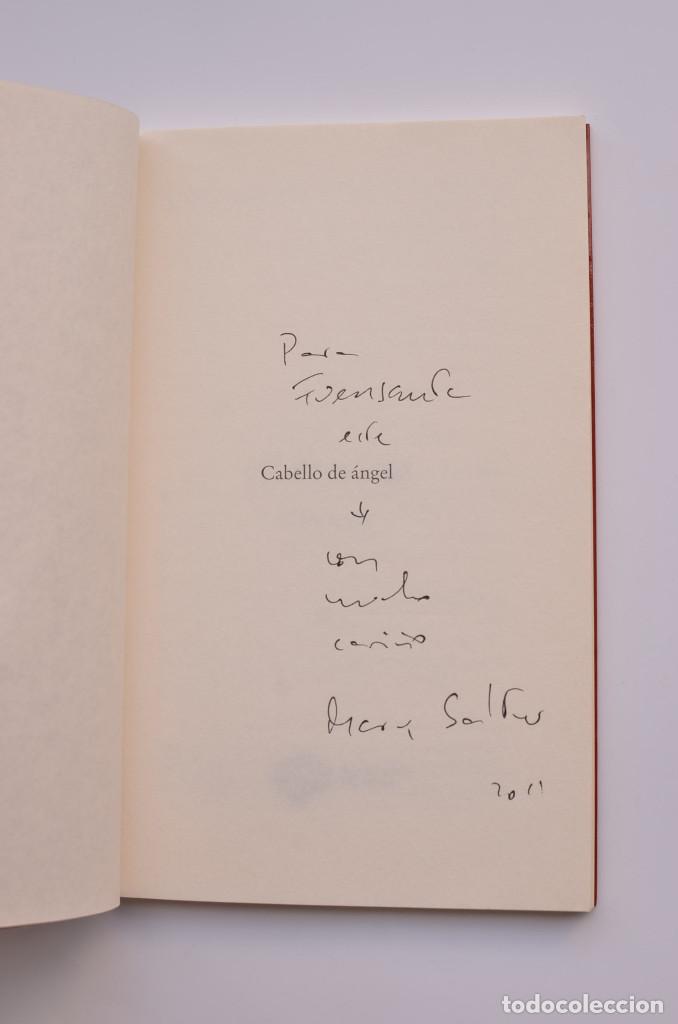 Para
Fuensanta
este
Cabello de ángel
con
mucho
cariño
2011
todocoleccion